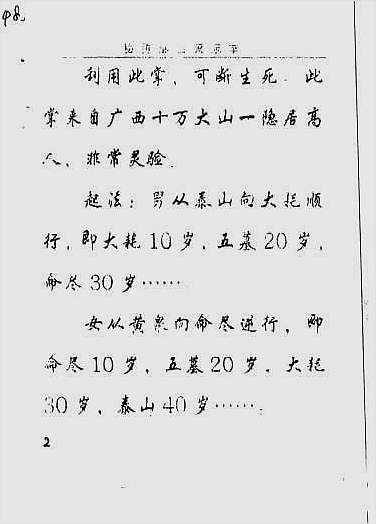 48
利用此掌，可断生死．此
掌来自广西十万大山一隐居高
人、非常灵验．
起法：男从泰山向大耗顺
行，即大耗10岁，五墓20岁，
命尽30岁……
女从黄泉向命尽逆行，即
命尽10岁，五墓20岁，大耗
30岁，泰山40岁……．
2